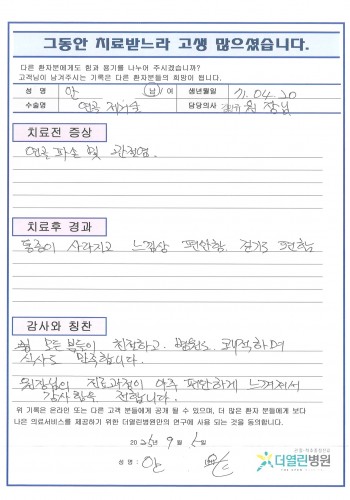 그동안 치료받느라 고생 많으셨습니다.
다른 환자분에게도 힘과 용기를 나누어 주시겠습니까?
고객님이 남겨주시는 기록은 다른 환자분들의 희망이 됩니다.
성 명 안 (남)/여 생년월일 71.04.20
수술명 연골 제거술 담당의사 원장님
치료전 증상
연골 파손 및 관절염.
치료후 경과
통증이 사라지고 느낌상 편안함. 걷기도 편함
감사와 칭찬
모든 분들이 친절하고. 병원도 쾌적하며
식사도 만족합니다.
원장님의 진료과정이 아주 편안하게 느껴져서
감사함을 전합니다.
위 기록은 온라인 또는 다른 고객 분들에게 공개 될 수 있으며, 더 많은 환자 분들에게 보다
나은 의료서비스를 제공하기 위한 더열린병원만의 연구에 사용 되는 것을 동의합니다.
2025년 9월 일
성 명 : 안
더열린병원